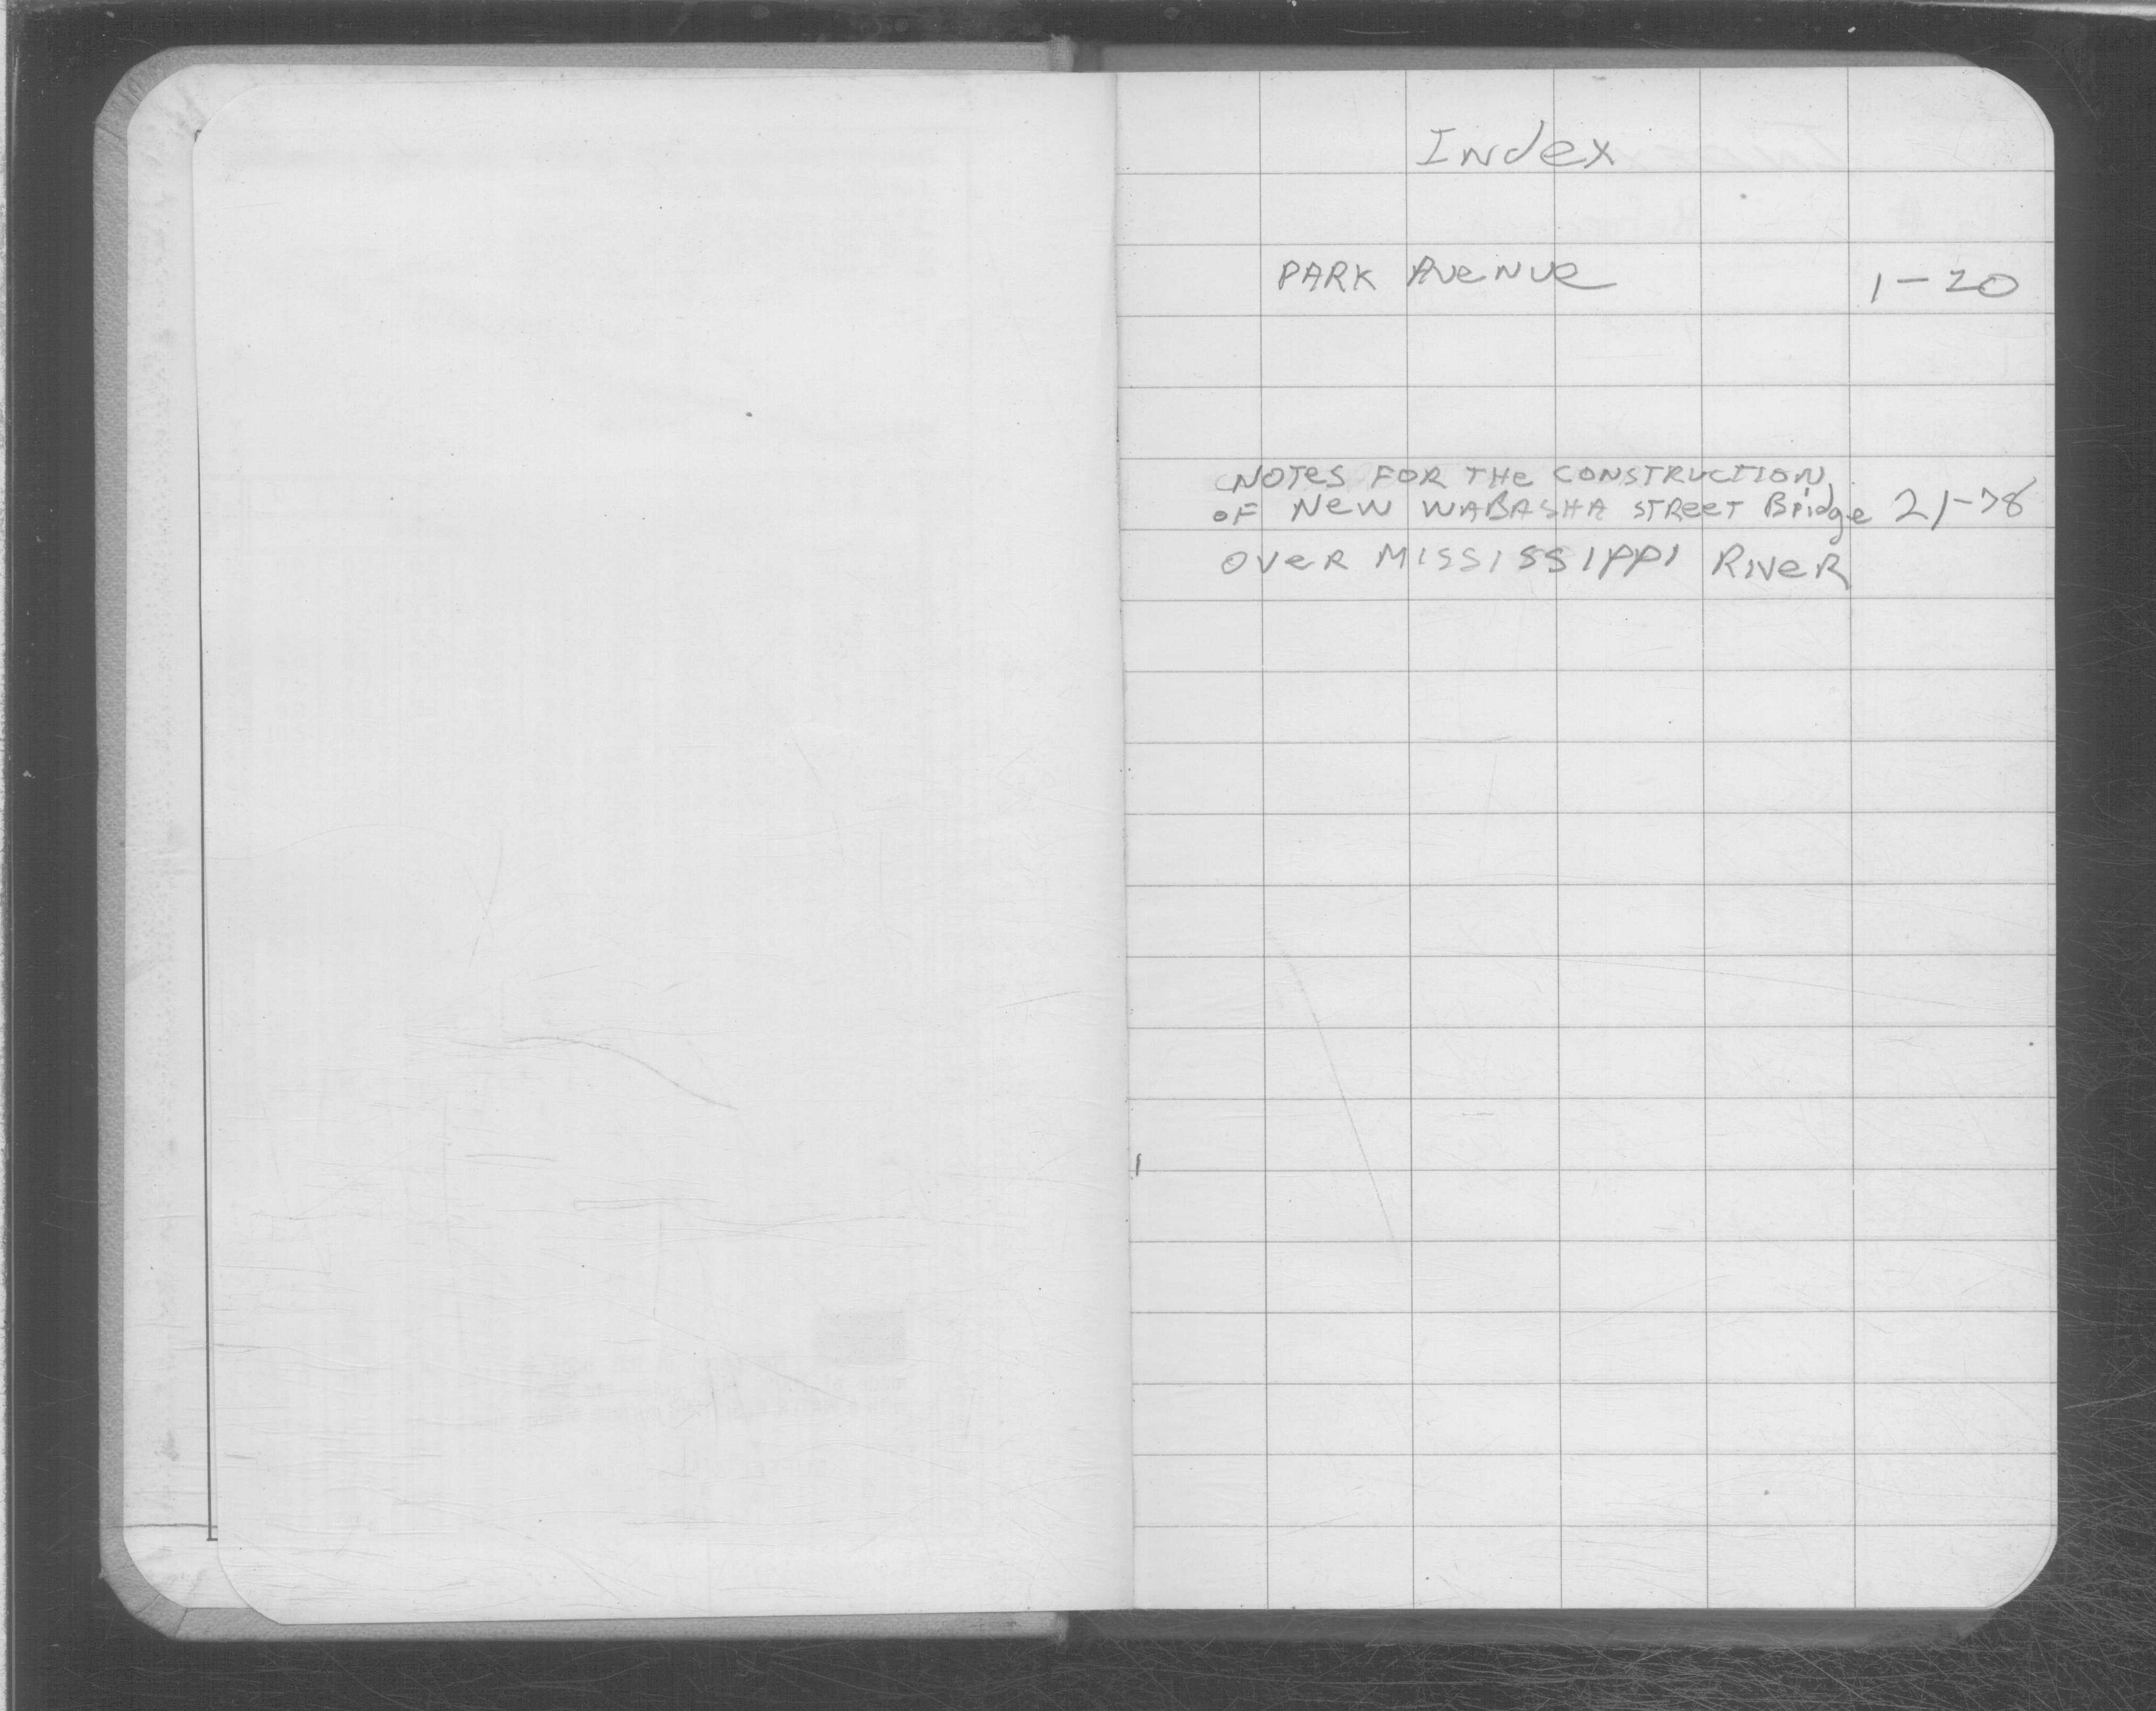 Index
PARK AVENUE 1-20
NOTES FOR THE CONSTRUCTION
OF NEW WABASHA STREET Bridge 21-78
OVER MISSISSIPPI RIVER